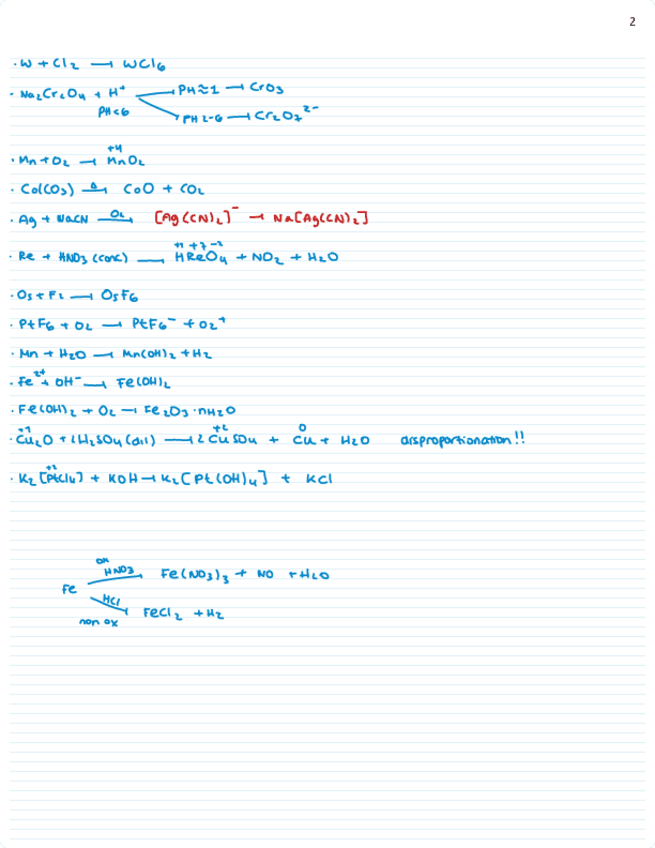 2
· W + Cl2 → WCl6
· Na2Cr2O4 + H+ → PH≈1 → CrO3
PH<6 → PH 2-6 → Cr2O7 2-
+4
· Mn + O2 → MnO2
· Co(CO3) Δ→ CoO + CO2
· Ag + NaCN O2→ [Ag(CN)2]- → Na[Ag(CN)2]
+1 +7 -2
· Re + HNO3 (conc) → HReO4 + NO2 + H2O
· Os + F2 → OsF6
· PtF6 + O2 → PtF6- + O2+
· Mn + H2O → Mn(OH)2 + H2
· Fe2+ + OH- → Fe(OH)2
· Fe(OH)2 + O2 → Fe2O3·nH2O
+1 +2 0
· Cu2O + H2SO4 (dil) → 2 CuSO4 + Cu + H2O disproportionation!!
+2
· K2[PtCl4] + KOH → K2[Pt(OH)4] + KCl
ox
HNO3 → Fe(NO3)3 + NO + H2O
Fe
HCl → FeCl2 + H2
non ox